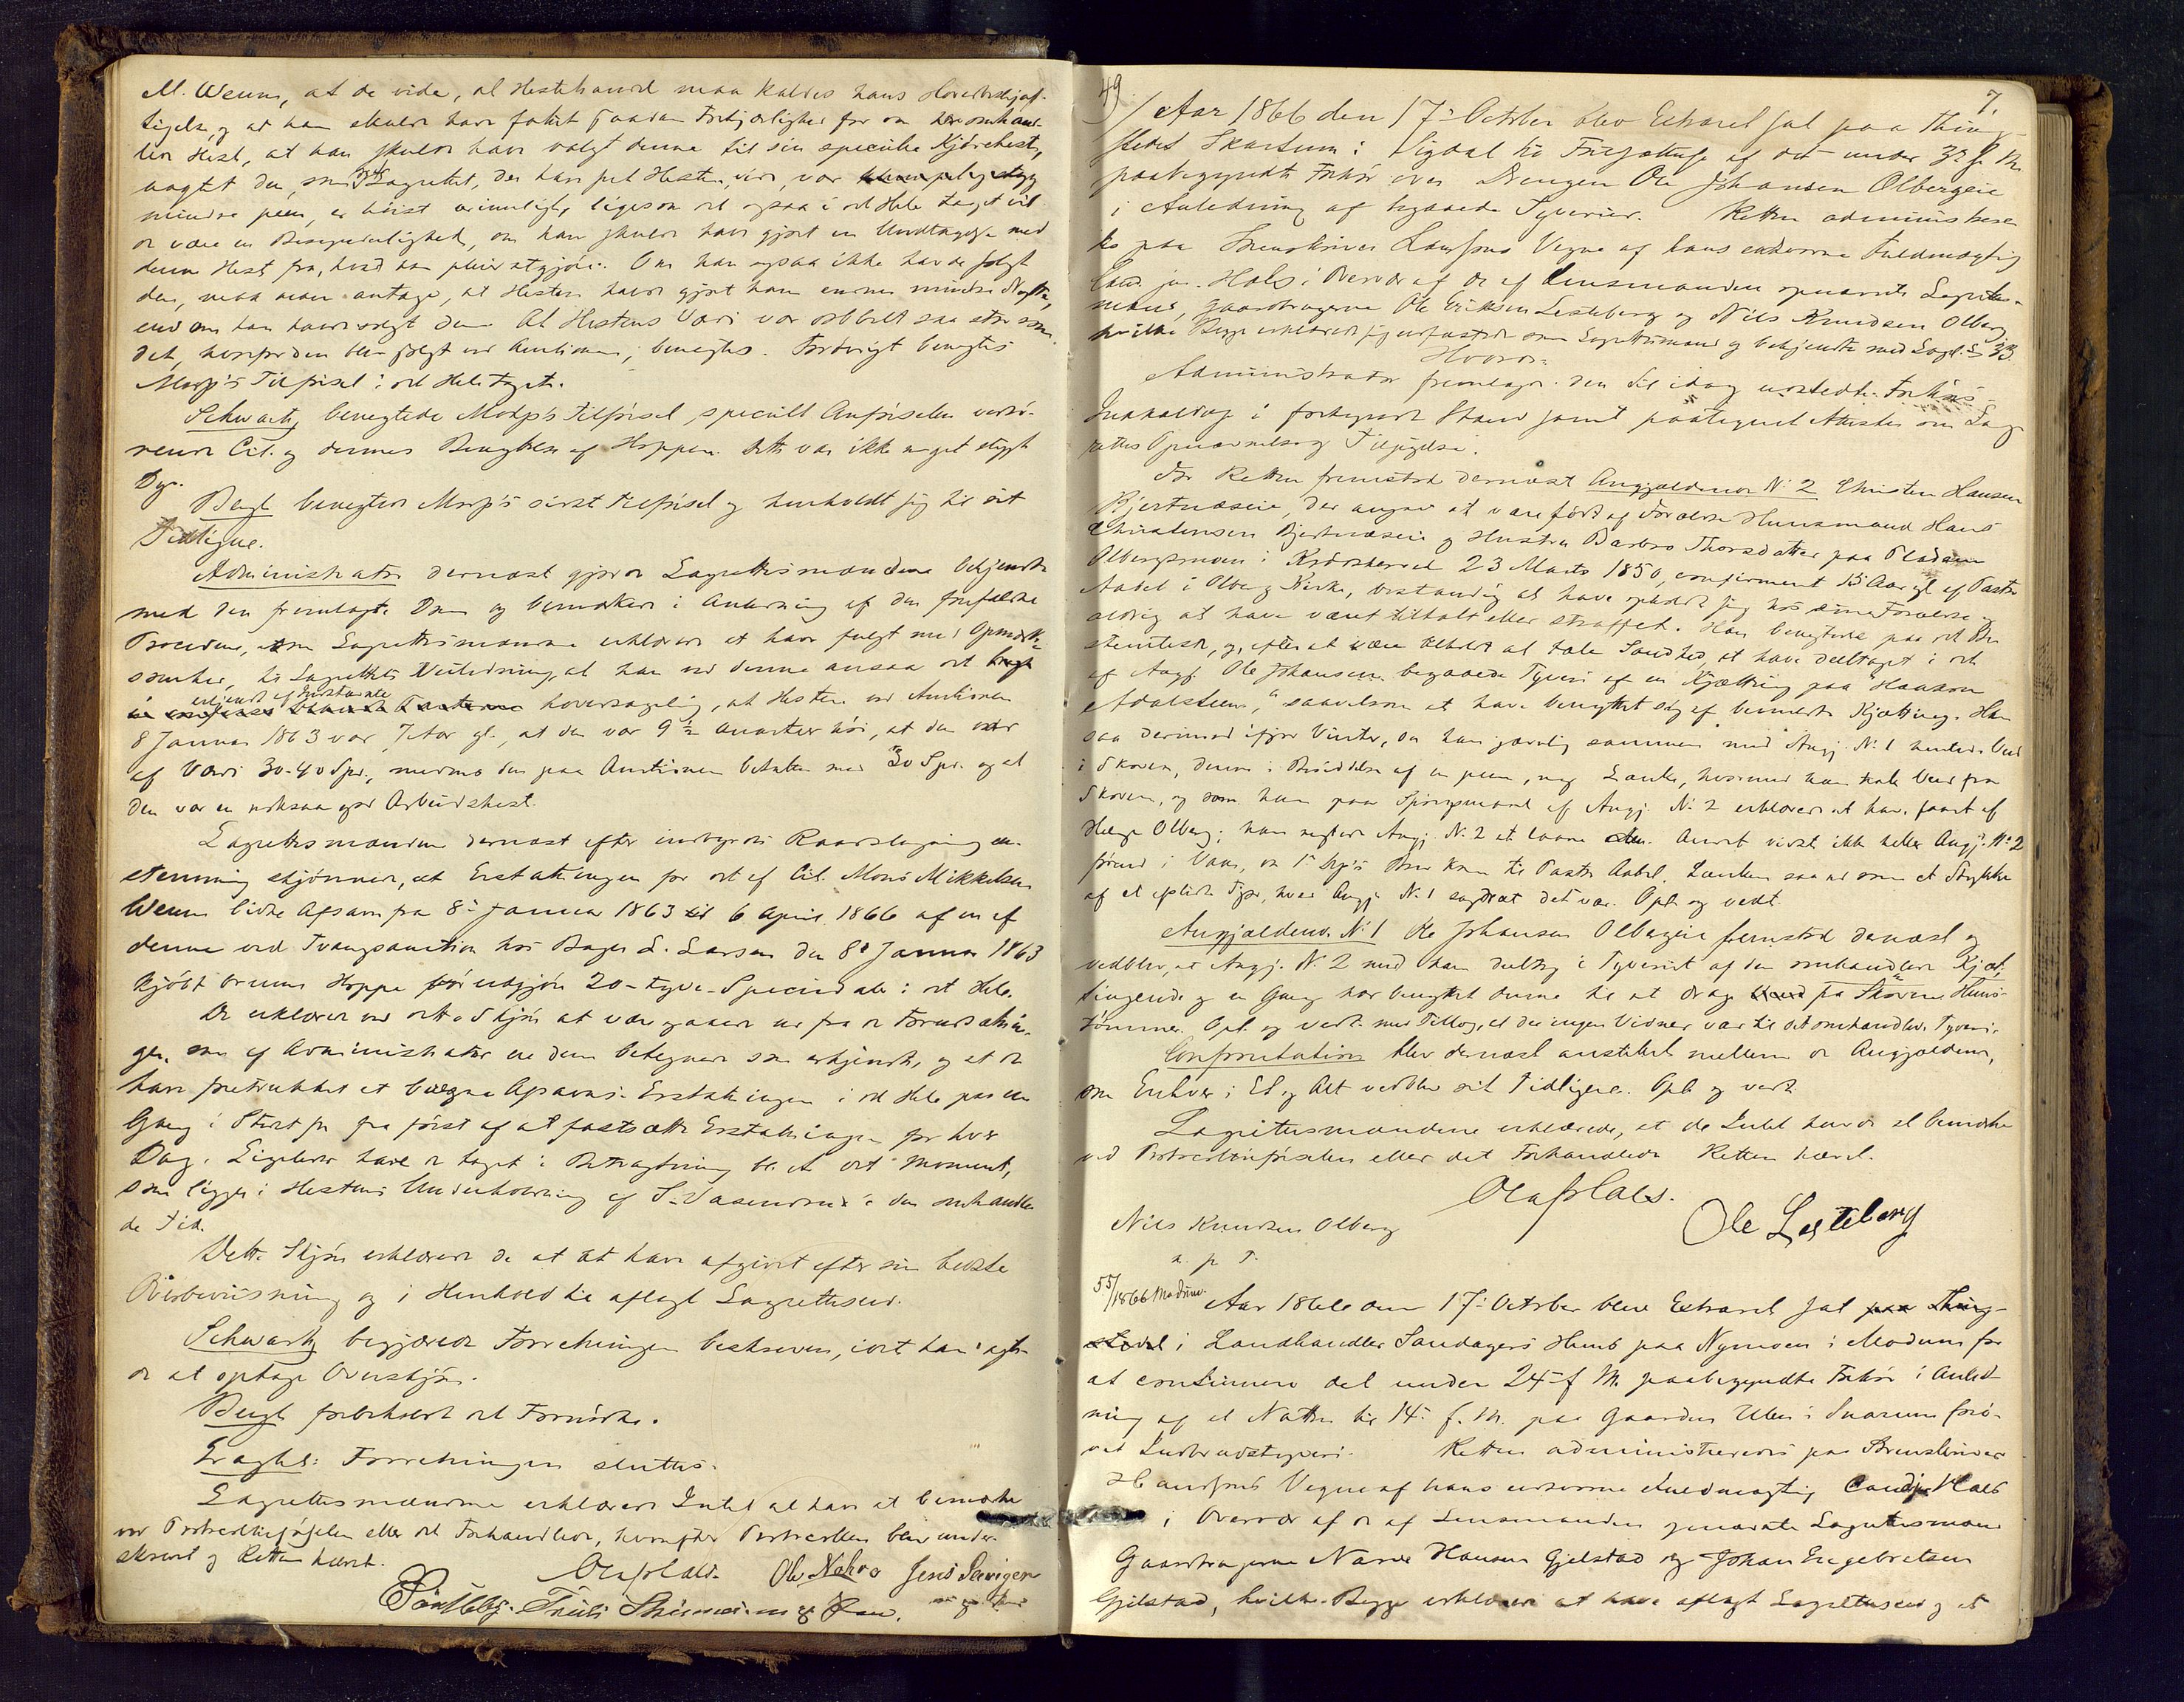 M. Wenns, at de vide, at Hestehandel maa kaldes hans Hovedbeskjæf-
tigelse, og at han skulde have fattet saadan Forkjærlighed for en her omhand-
let Hest, at han skulde have valgt denne til sin specielle Kjørehest,
uagtet den, som Lagrettet, der har seet Hesten, vide, var
mindre pæn, er høist urimeligt, ligesom det ogsaa i det Hele taget vil-
de være en Besynderlighed, om han skulde have gjort en Undtagelse med
denne Hest fra, hvad han pleier at gjøre. Om han ogsaa ikke havde solgt
den, maa man antage, at Hesten havde gjort ham endnu mindre Nytte,
end om han havde solgt den. At Hestens Værd var dobbelt saa stor som
det, hvorfor den blev solgt ved Auctionen, benegtes. Forøvrigt benegtes
Morp's Tilførsel i det Hele taget.
Schwartz benegtede Modp's Tilførsel, specielt Anførselen vedrø-
rende Cit. og dennes Benyttelse af Hoppen. Dette var ikke noget stygt
Dyr.
Bergh benegtede Morp's sidst Tilførsel og henholdt sig til sit
Tidligere.
Administrator dernæst gjorde Lagrettesmændene bekjendt
med den fremlagte Dom og bemærkede i Anledning af den forefaldne
Procedure, som Lagrettesmændene erklærede at have fulgt med Opmærk-
somhed, til Lagrettets Veiledning, at han ved denne ansaa det
erkjendt af Parterne hovedsagelig, at Hesten ved Auctionen
8 Januar 1863 var 7 Aar gl., at den var 9½ Qvarteer høi, at den var
af Værd 30-40 Spd., medens den paa Auctionen betaltes med 30 Spd. og at
den var en noksaa god Arbeidshest.
Lagrettesmændene dernæst efter indbyrdes Raadslagning en-
stemmig skjønnede, at Erstatningen for det af Cit. Mons Mikkelsen
Wenns lidte Afsavn fra 8de Januar 1863 til 6 April 1866 af en af
denne ved Tvangsauction hos Bager L. Larsen den 8de Januar 1863
kjøbt bruun Hoppe bør udgjøre 20 - tyve - Speciedaler i det Hele.
De erklærede ved dette Skjøn at være gaaede ud fra de Forudsætnin-
ger, som af Administrator ere dem betegnede som erkjendte, og at de
have foretrukket at beregne Afsavns-Erstatningen i det Hele paa en
Gang i Stedet for fra først af at fastsætte Erstatningen for hver
Dag. Ligeledes have de taget i Betragtning bl. A. det Moment,
som ligger i Hestens Underholdning af i den omhandle-
de Tid.
Dette Skjøn erklærede de at have afgivet efter sin bedste
Overbeviisning og i Henhold til aflagt Lagretteseed.
Schwartz begjærede Forretningen beskreven, idet han agte-
de at optage Overskjøn.
Bergh forbeholdt det Fornødne.
Eragtet: Forretningen sluttes.
Lagrettesmændene erklærede Intet at have at bemærke
ved Protocolførselen eller det Forhandlede, hvorefter Protocollen blev under-
skrevet og Retten hævet.
Olaf Hals. Ole Nokra Jens
7.
49
Aar 1866 den 17de October blev Extraret sat paa Thing-
stedet Skartum i Sigdal til Fortsættelse af det under 3die f. M.
paabegyndte Forhør over Drengen Ole Johansen Olbergeie
i Anledning af begaaede Tyverier. Retten administrere-
des paa Sorenskriver Vegne af hans edsvorne Fuldmægtig
Cand. jur. Hals i Overvær af de af Lensmanden opnævnte Lagrettes-
mænd, Gaardbrugerne Ole Eriksen Lesteberg og Nils Knudsen Olberg,
hvilke Begge erklærede sig edfæstede som Lagrettesmænd og bekjendte med Lagl. §33.
Hvorda:
Administrator fremlagde den til idag udstedte Forhørs-
Indkaldelse i forkyndt Stand samt paategnet Attester om Lag-
rettes Opnævnelse og Tilsigelse.
For Retten fremstod dernæst Angjældende No 2 Christen Hansen
Bjertnæseie, der angav at være født af Forældre Huusmand Hans
Christensen Bjertnæseie og Hustru Barbro Thorsdatter paa Pladsen
Olbergsmoen i Krødsherred 23 Marts 1850, confirmeret 15 Aar gl. af Pastor
Aabel i Olberg Kirke, bestandig at have opholdt sig hos sine Forældre og
aldrig at have været tiltalt eller straffet. Han benegtede paa det Be-
stemteste, og, efter at være tilholdt at tale Sandhed, at have deeltaget i det
af Angj. Ole Johansen begaaede Tyveri af en Kjætting paa "Haakon
Adalsteen," saavelsom at have benyttet sig af bemeldte Kjætting. Han
saa derimod ifjor Vinter, da han jævnlig sammen med Angj. No 1 hentede Ved
i Skoven, denne i Besiddelse af en pæn, ny Lænke, hvormed han trak Ved fra
Skoven, og som han paa Spørgsmaal af Angj. No 2 erklærede at have faaet af
Helge Olberg; han negtede Angj. No. 2 at laane den. Andet vidste ikke heller Angj. No 2
førend i Vaar, da 1ste Dep's Brev kom til Pastor Aabel. Lænken saa ud som et Stykke
af et splidt Tøir, hvad Angj. No. 1 sagde at det var. Opl. og vedt.
Angjældende No 1 Ole Johansen Olbergeie fremstod dernæst og
vedblev, at Angj. No. 2 med ham deeltog i Tyveriet af den omhandlede Kjæt-
ting og en Gang har benyttet denne til at drage fra Skoven Huus-
tømmer. Opl. og vedt. med Tillæg, at der ingen Vidner var til det omhandlede Tyveri.
Confrontation blev dernæst anstillet mellem de Angjældende,
som Enhver i Et og Alt vedblev sit Tidligere. Opl. og vedt.
Lagrettesmændene erklærede, at de Intet havde at bemærke
ved Protocolførselen eller det Forhandlede. Retten hævet.
Olaf Hals.
Nils Knudsen Olberg Ole Lesteberg
m. p. P.
55/1866 Modum. Aar 1866 den 17de October blev Extraret sat paa Thing-
stedet i Landhandler Sandagers Huus paa Nymoen i Modum for
at continuere det under 24de f. M. paabegyndte Forhør i Anled-
ning af et Natten til 14de f. M. paa Gaarden Ulen i Snarum prø-
vet Indbrudstyveri. Retten administreredes paa Sorenskriver
Vegne af hans edsvorne Fuldmægtig Cand. jur. Hals
i Overvær af de af Lensmanden opnævnte Lagrettesmænd
Gaardbrugerne Narve Hansen Gjelstad og Johan Engebretsen
Gjelstad, hvilke Begge erklærede at have aflagt Lagretteseed og at